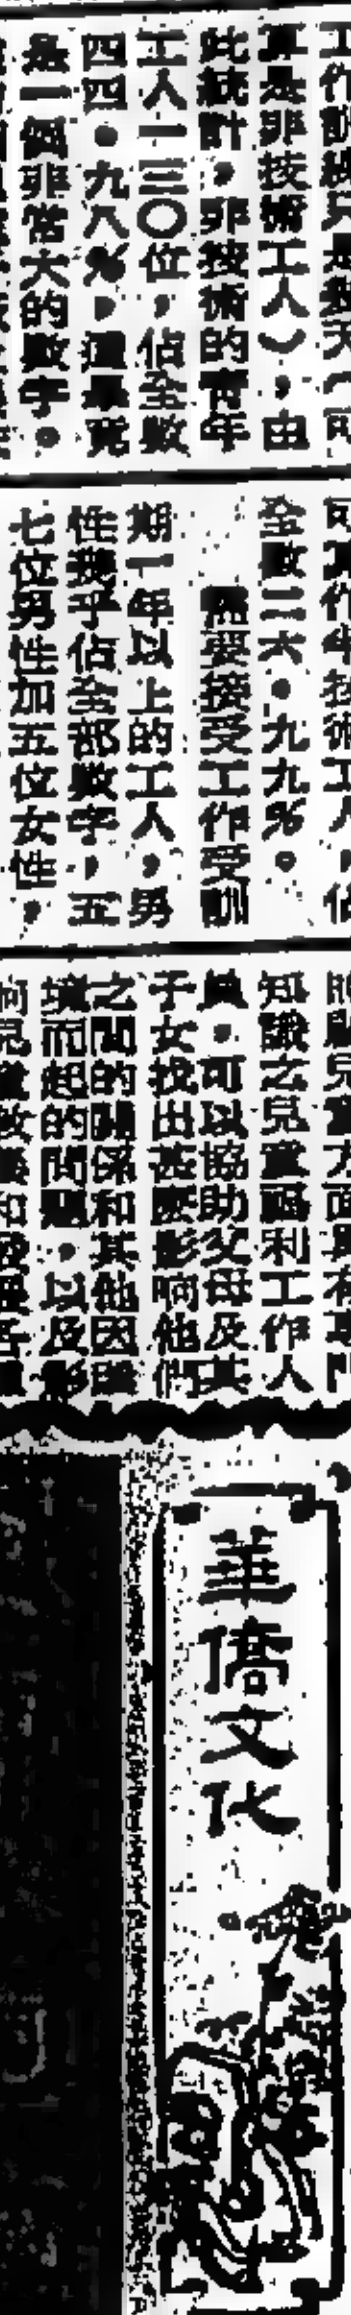 算是非技術工人），由
此統計，非技術的青年
工人一三〇位，佔全數
四四．九八％，這畢竟
是一個非常大的數字。
可算作半技術工人，佔
全數二六．九九％。
需要接受工作受訓
期一年以上的工人，男
性幾乎佔全部數字，五
七位男性加五位女性，
知識之兒童福利工作人
員，可以協助父母及其
子女找出甚麼影响他們
之間的關係和其他因環
境而起的問題，以及影
華僑文化